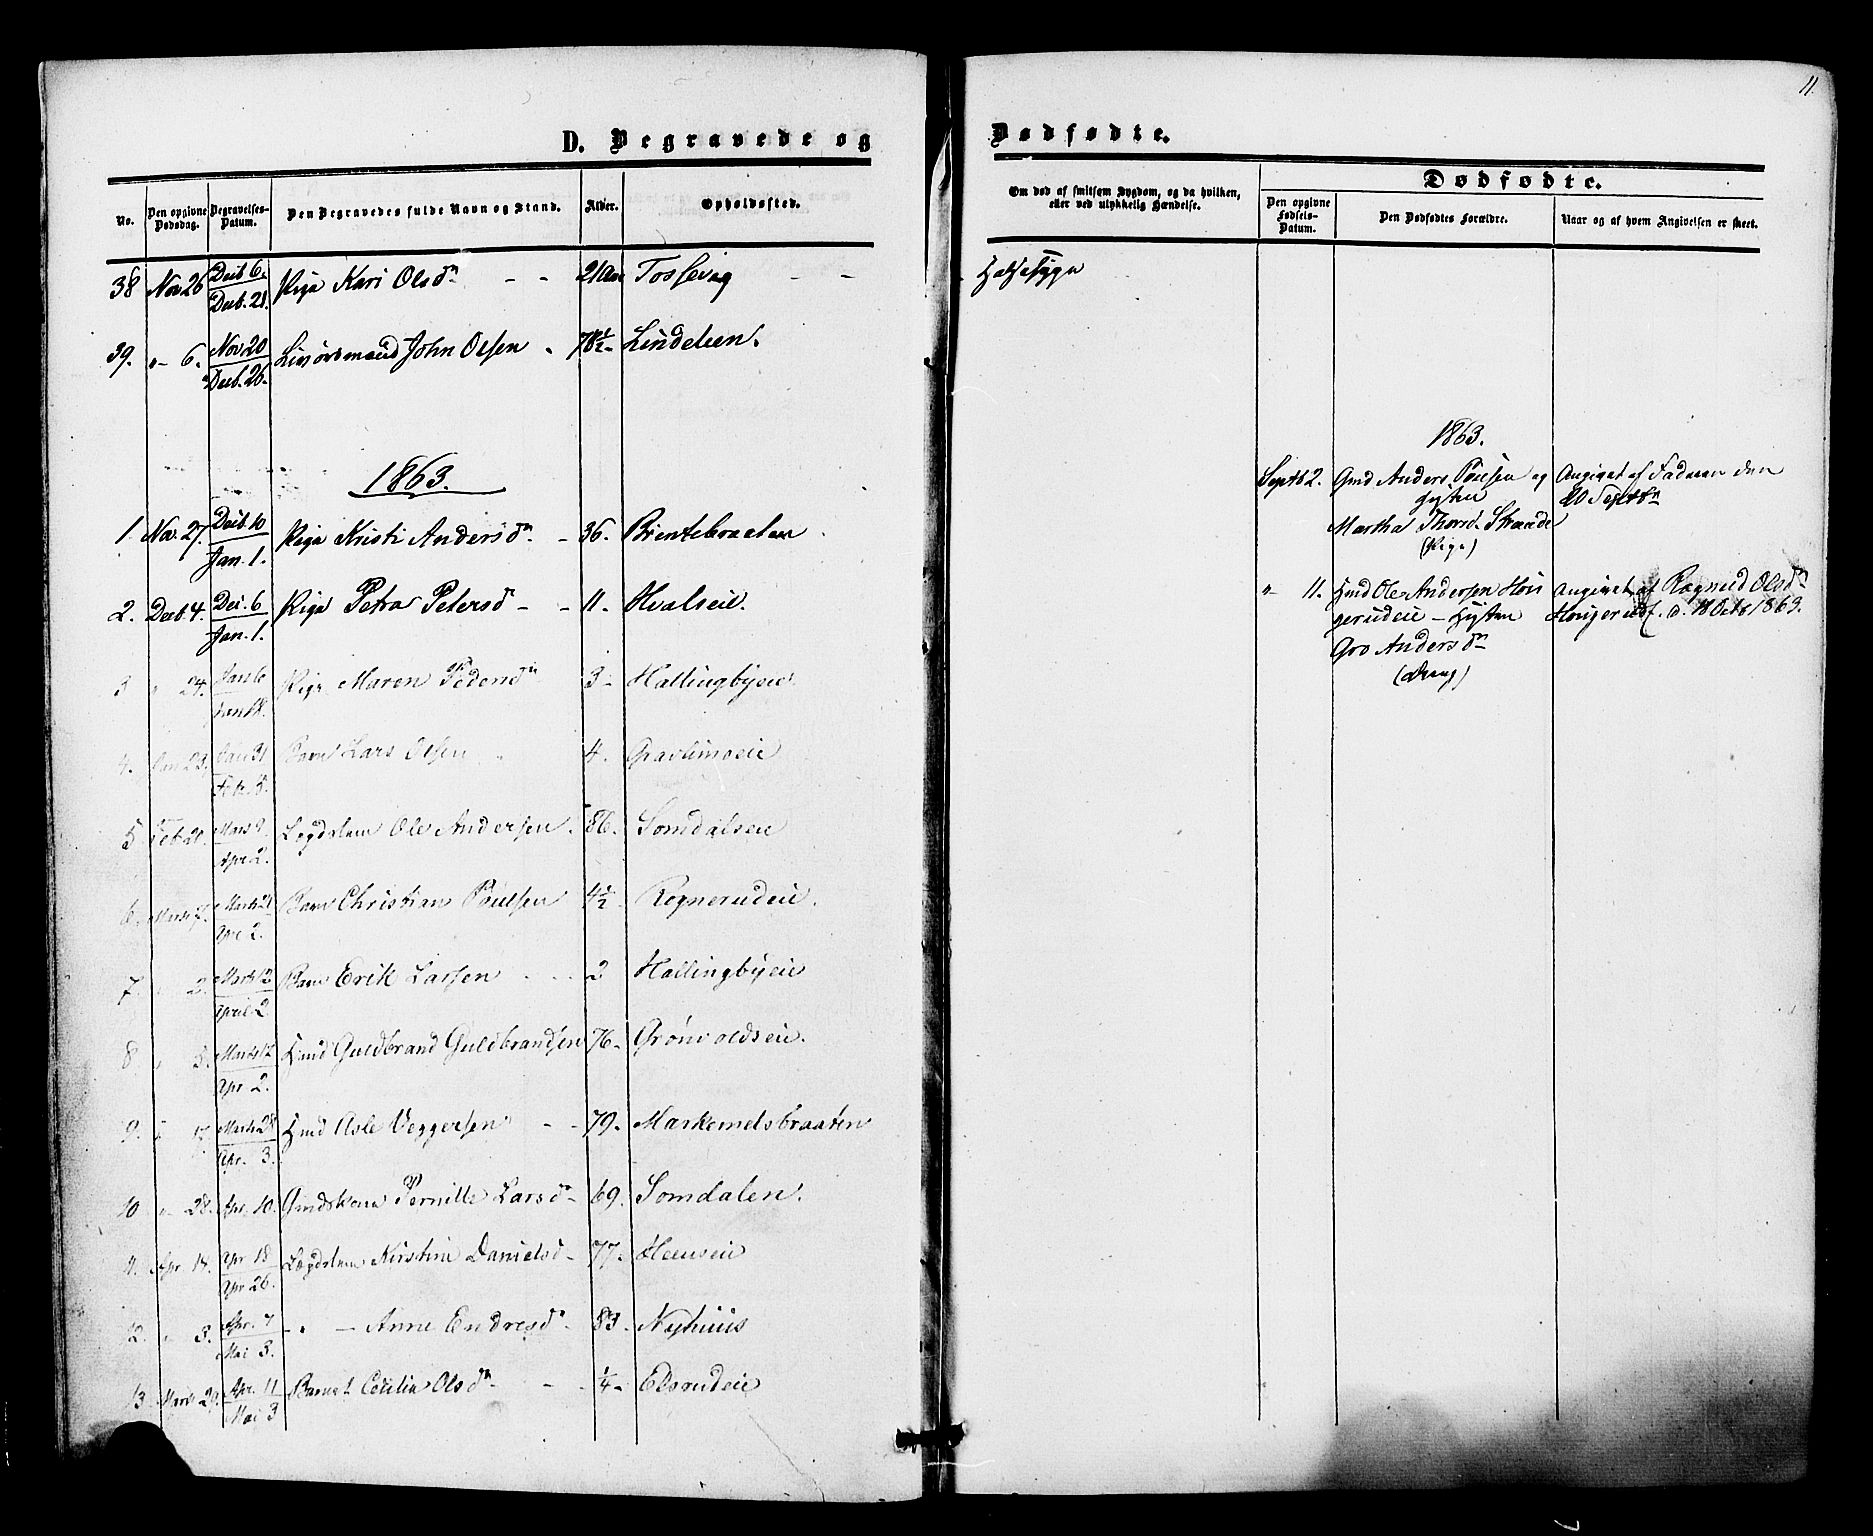 11.
D. Begravede og
Dødfødte.
No.
Den opgivne Dødsdag.
Begravelses-Datum.
Den Begravedes fulde Navn og Stand.
Alder.
Opholdssted.
Om død af smitsom Sygdom, og da hvilken, eller ved ulykkelig Hændelse.
Dødfødte.
Den opgivne Fødsels-Datum.
Den Dødfødtes Forældre.
Naar og af hvem Angivelsen er skeet.
38 Nov 26 Decb 6. Decb. 21. Pige Kari Olsdn - - 21 Aar Tossevig - - Halssyge
39. "- 6. Nov 20 Decb. 26. John Olsen 78½- Lindelien.
1863.
1. Nov. 27. Decb. 10 Jan. 1. Pige Kristi Andersdn - 36. Brentebraaten
2. Decb 4. Dec. 6 Jan. 1. Pige Petra Petersd - - 11. Hvalseie.
3 " 24. Jan 6 Jan 18. Pige Maren Pedersdn 3- Hallingbyeie
4. Jan 23. Jan 31 Feb. 8. Barn Lars Olsen 4.
5 Feb 20. Marts 9 Apr 2. Lægdslem Ole Andersen. 86. Somdalseie
6. Marts 7. Marts 21 Apr 2. Barn Christian Poulsen 4½ Rognerudeie.
7. " 2. Marts 12 April 2. Barn Erik Larsen - - 2 Hallingbyeie
8 " 3. Marts 12 Apr 2. Hmd Guldbrand Guldbrandsen 76- Grønvoldseie.
9. " 17. Marts 28 Apr. 3. Hmd Asle Veggersen - - 79. Markemdsbraaten
10 "- 28. Apr. 10. Gmdskone Pernille Larsdn - 69. Somdalen.
11. Apr 14. Apr 18 Apr 26. Lægdslem Kirstine Danielsd - 77. Heenseie
12. " 3. Apr. 7 Mai 3. - " - Anne Endresdn - 83- Nyhuus
13 Marts 29. Apr. 11 Mai 3 Barnet Cecilia Olsdn - - ¼- Elsrudeie
1863.
Septb 2. Gmd Anders Poulsen og Hustru Martha Thorsd. Strande (Pige) Angivet af Faderen den 10 Septbr
"- 11. Hmd Ole Andersen Hougerudeie - Hustru Gro Andersdn (Dreng) Angivet af Ragnild Olsdn Hougerudf. d. 18 Octb 1863.